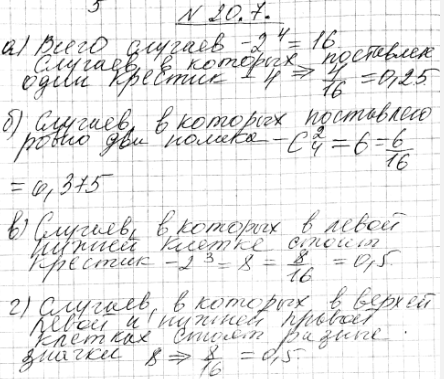 5
N 20.7.
а) Всего случаев - 2⁴ = 16
Случаев, в которых поставлен
один крестик - 4 ⇒ 4/16 = 0,25
б) Случаев, в которых поставлено
ровно два нолика - C²₄ = 6 = 6/16
= 0,375
в) Случаев, в которых в левой
нижней клетке стоит
крестик - 2³ = 8 = 8/16 = 0,5
г) Случаев, в которых в верхей
левой и нижней правой
клетках стоят разные
значки 8 ⇒ 8/16 = 0,5